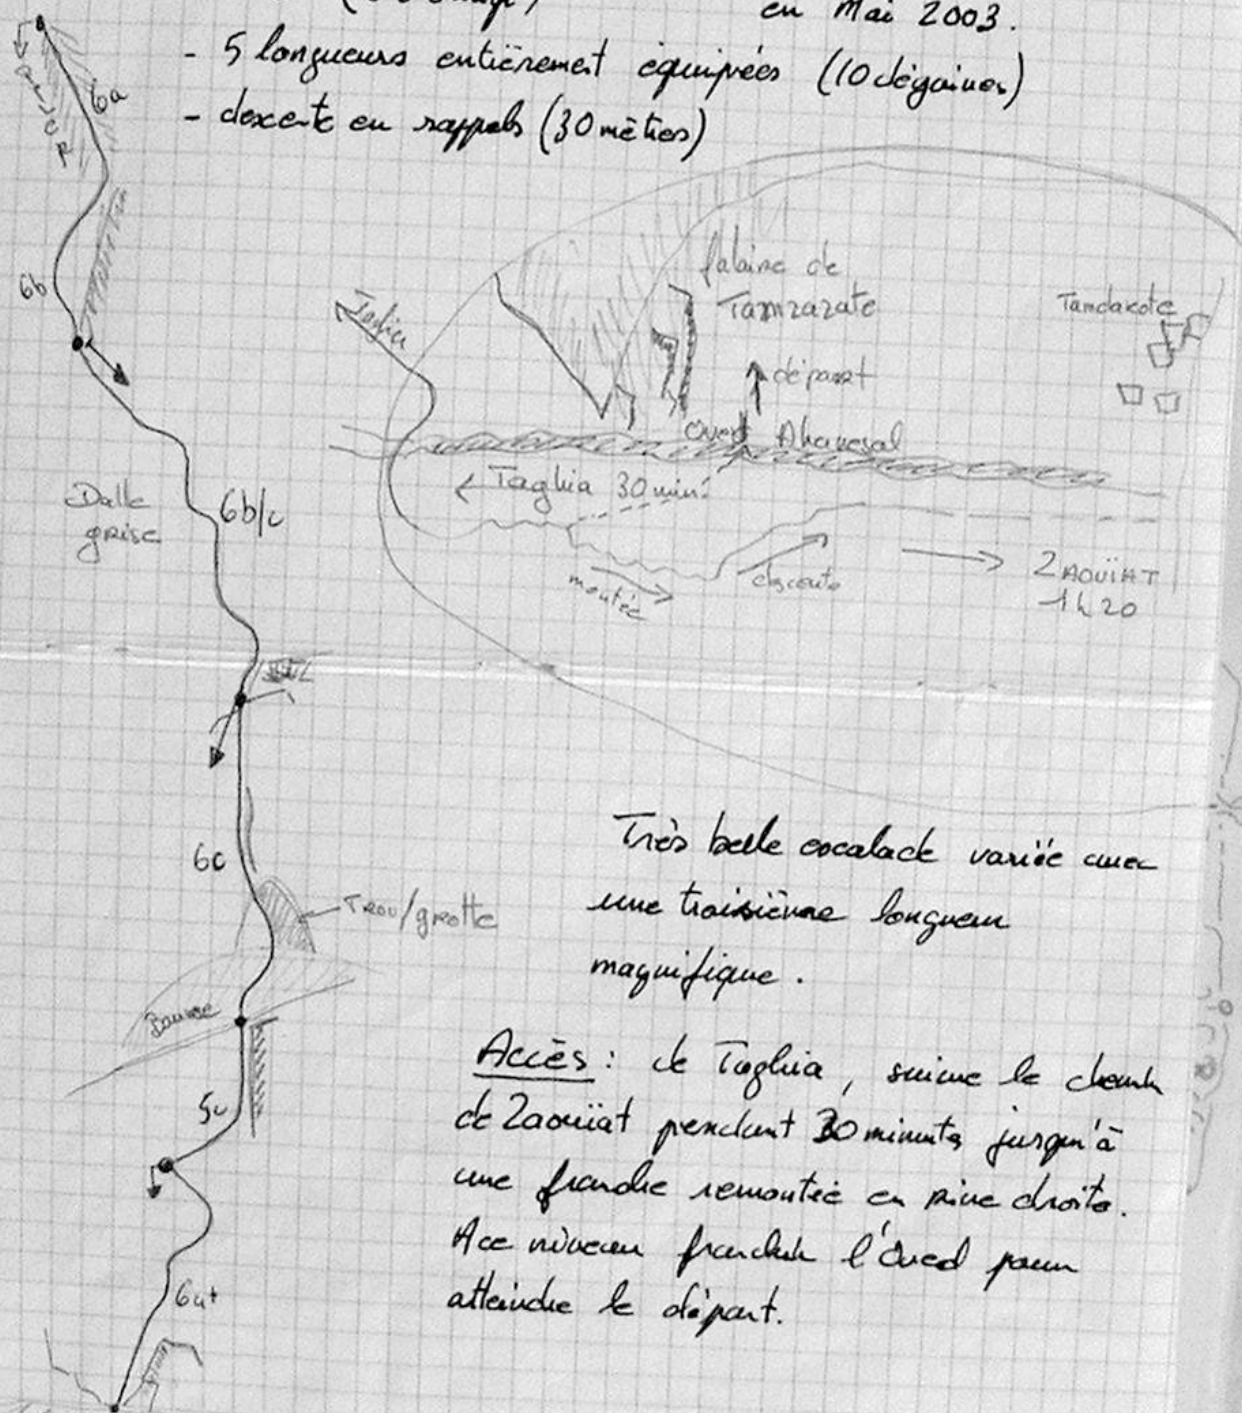 en Mai 2003.
- 5 longueurs entièrement équipées (10 dégaines)
- descente en rappels (30 mètres)
6a
6b
Dalle
grise
6b/c
6c
Trou/grotte
5c
6a+
falaise de
Tamzazate
Tamdakote
départ
Oued Ahanesal
Taghia 30 min
montée
descente
ZAOUÏAT
1h20
Très belle escalade variée avec
une troisième longueur
magnifique.
Accès : de Taghia, suivre le chemin
de Zaouïat pendant 30 minutes jusqu'à
une franche remontée en rive droite.
A ce niveau franchir l'Oued pour
atteindre le départ.